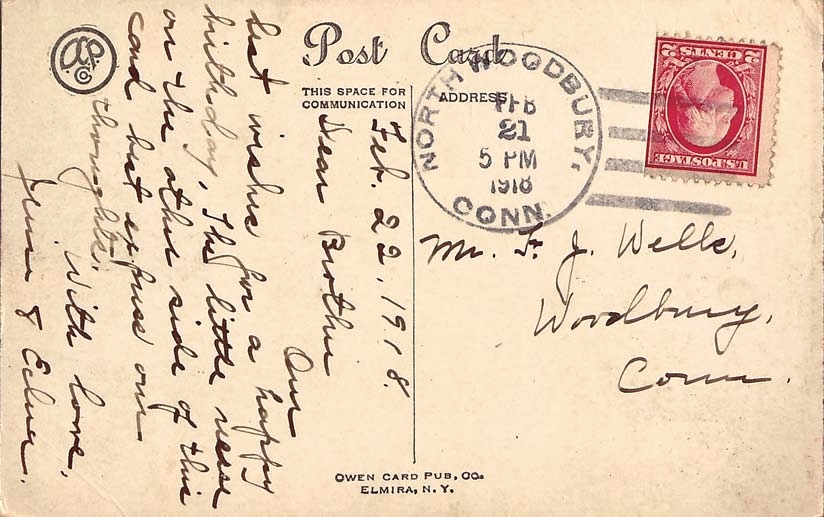 Post Card
THIS SPACE FOR
COMMUNICATION
ADDRESS
NORTH WOODBURY,
CONN.
FEB
21
5 PM
1918
2 CENTS 2
U.S. POSTAGE
Mr. F. J. Wells,
Woodbury,
Conn.
Feb. 22, 1918.
Dear Brother
Our
best wishes for a happy
birthday, The little verse
on the other side of this
card best express our
thoughts.
With love,
& Edna.
OWEN CARD PUB. CO.
ELMIRA, N. Y.